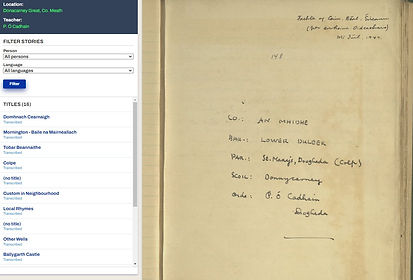 Location:
Donacarney Great, Co. Meath
Teacher:
P. Ó Cadhain
FILTER STORIES
Person
All persons
Language
All languages
Filter
TITLES (16)
Domhnach Cearnaigh
Transcribed
Mornington - Baile na Mairnealach
Transcribed
Tobar Beannaithe
Transcribed
Colpe
Transcribed
(no title)
Transcribed
Custom in Neighbourhood
Transcribed
Local Rhymes
Transcribed
(no title)
Transcribed
Other Wells
Transcribed
Ballygarth Castle
Transcribed
148
CO.: AN MHIDHE
BAR.: LOWER DULEEK
PAR.: St. Mary's, Drogheda (Colpe)
SCOIL: Donnycarney
Oide: P. Ó Cadhain
Drogheda